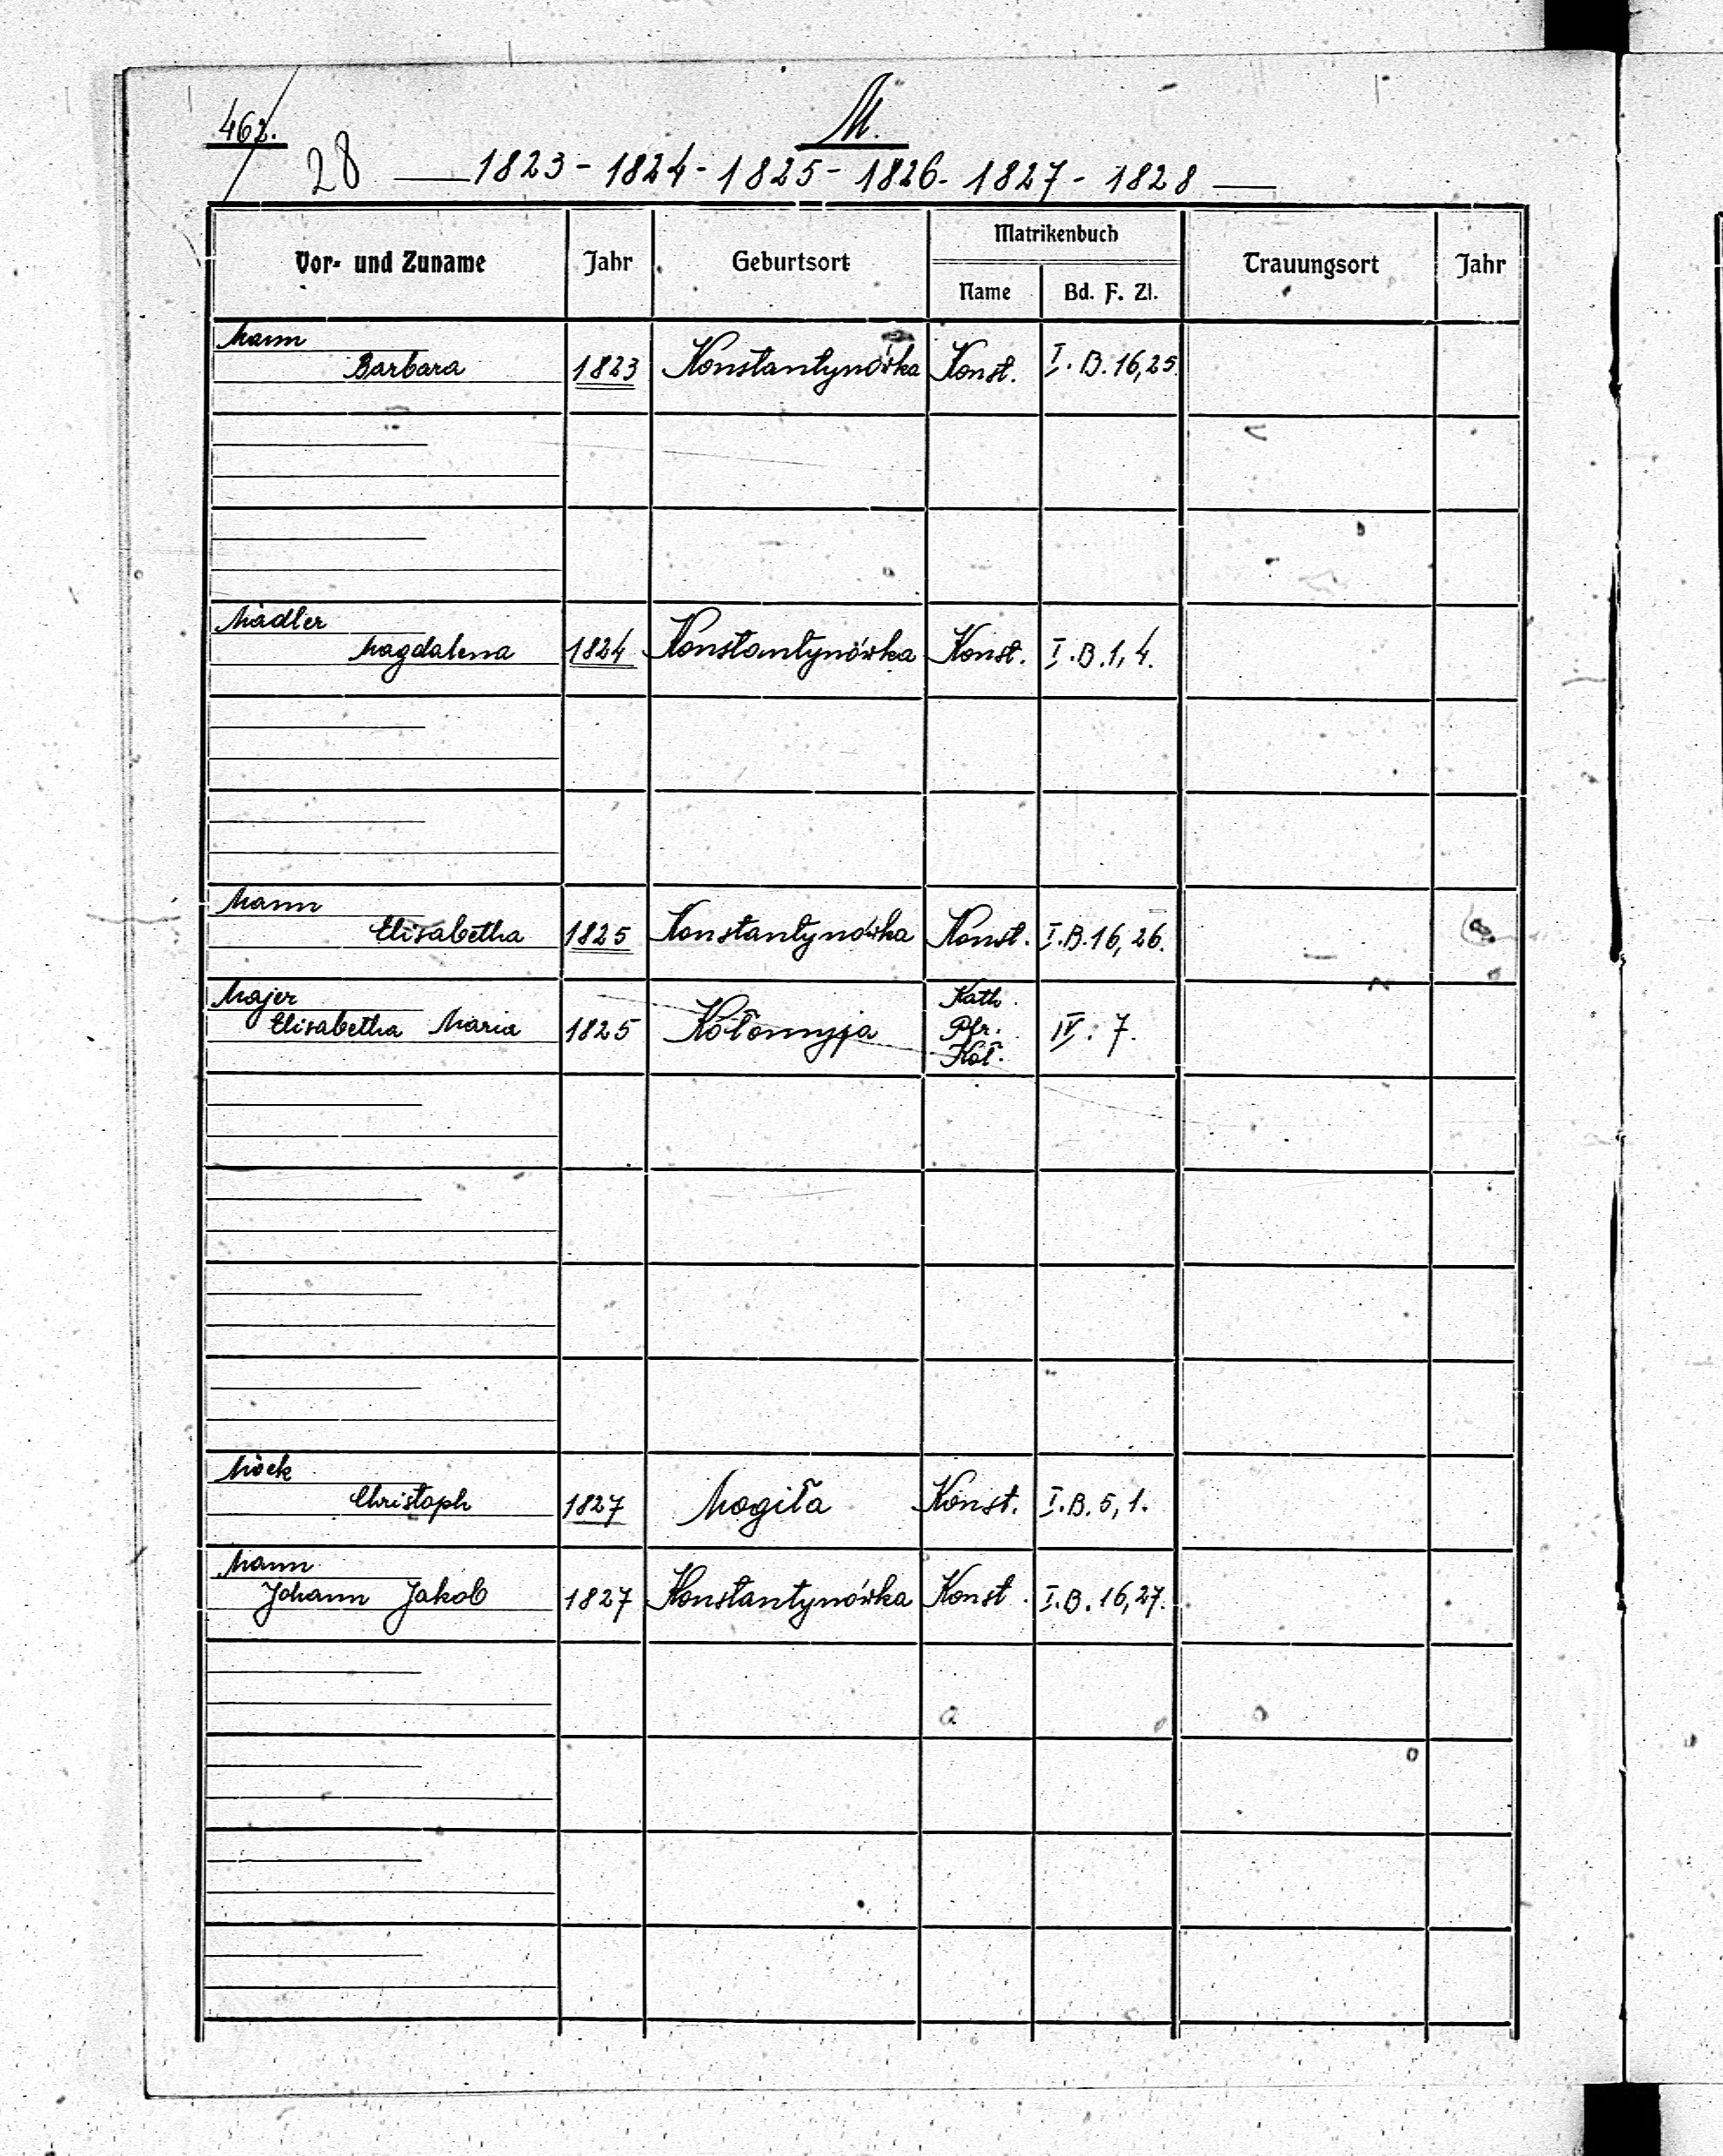 462.
28
M.
1823 - 1824 - 1825 - 1826 - 1827 - 1828
Vor- und Zuname Jahr Geburtsort Matrikenbuch Trauungsort Jahr
Name Bd. F. Zl.
Mann
Barbara 1823 Konstantynówka Konst. I. B. 16, 25.
Mädler
Magdalena 1824 Konstantynówka Konst. I. B. 1, 4.
Mann
Elisabetha 1825 Konstantynówka Konst. I. B. 16, 26.
Majer Kath.
Elisabetha Maria 1825 Kołomyja Pfr. IV. 7.
Koł.
Möck
Christoph 1827 Mogiła Konst. I. B. 5, 1.
Mann
Johann Jakob 1827 Konstantynówka Konst. I. B. 16, 27.